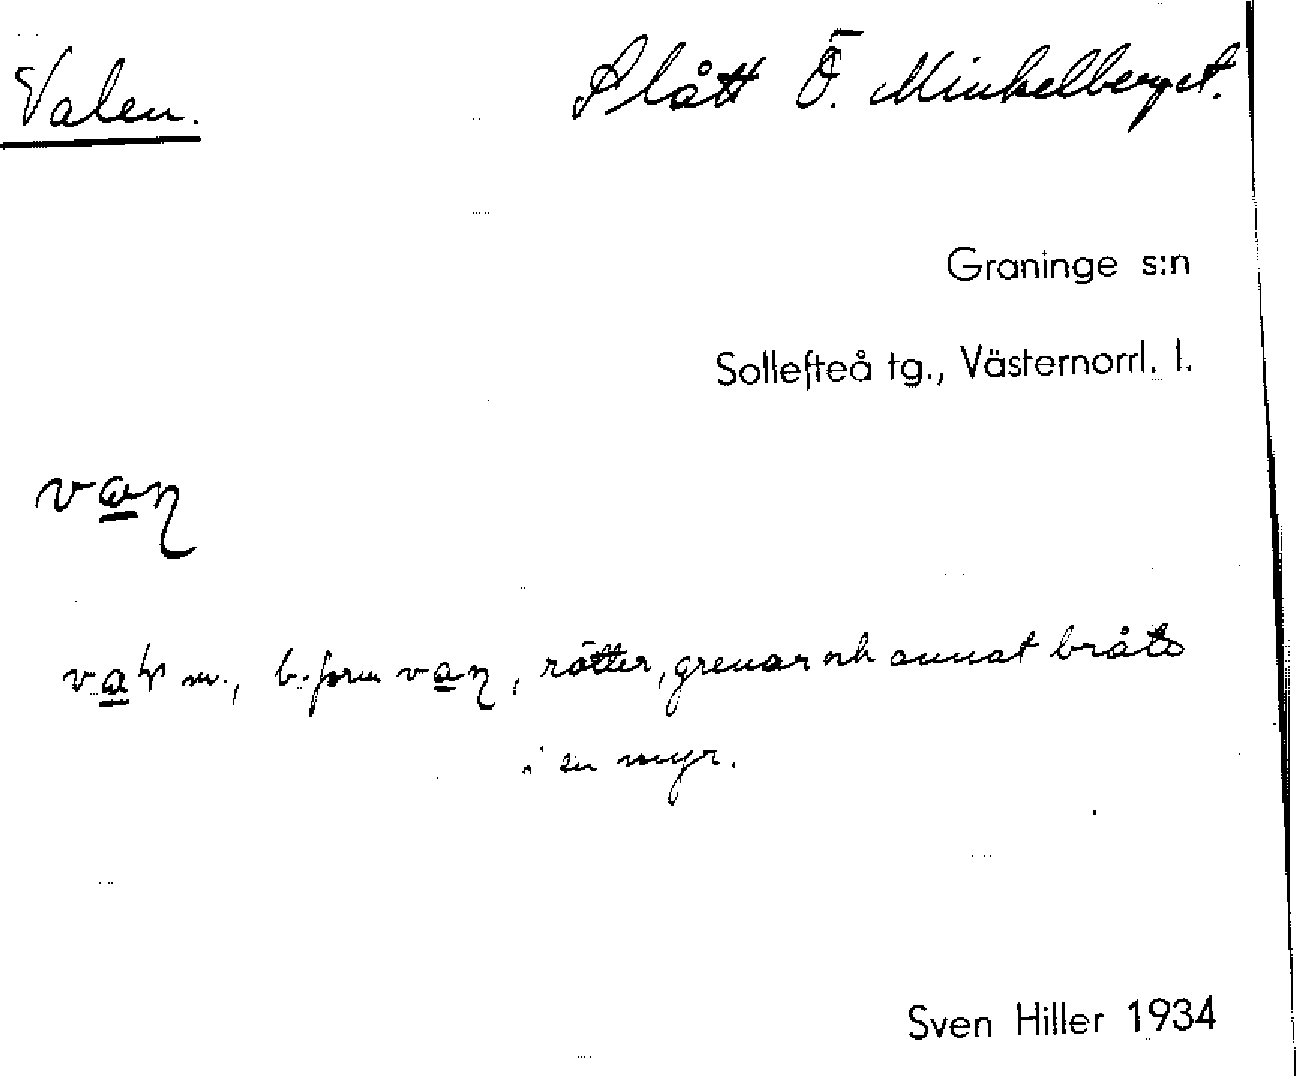 Valen. Slått Ö. Minkelberget.
Graninge s:n
Sollefteå tg., Västernorrl. l.
vaɳ
m., b. form vaɳ, rötter, grenar och annat bråte
i en myr.
Sven Hiller 1934